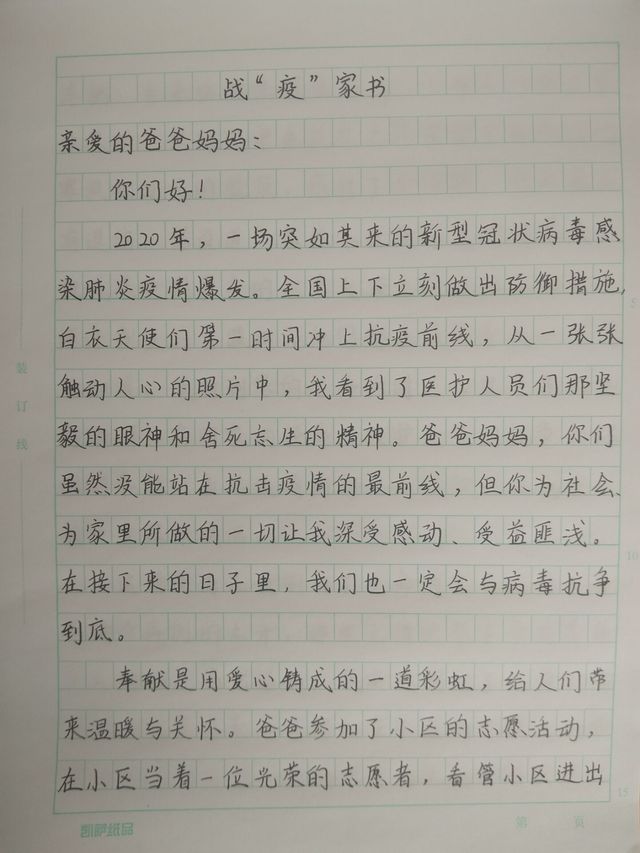 战“疫”家书
亲爱的爸爸妈妈：
你们好！
2020年，一场突如其来的新型冠状病毒感
染肺炎疫情爆发。全国上下立刻做出防御措施，
白衣天使们第一时间冲上抗疫前线，从一张张
触动人心的照片中，我看到了医护人员们那坚
毅的眼神和舍死忘生的精神。爸爸妈妈，你们
虽然没能站在抗击疫情的最前线，但你为社会、
为家里所做的一切让我深受感动、受益匪浅。
在接下来的日子里，我们也一定会与病毒抗争
到底。
奉献是用爱心铸成的一道彩虹，给人们带
来温暖与关怀。爸爸参加了小区的志愿活动，
在小区当着一位光荣的志愿者，看管小区进出
装订线
5
10
15
凯萨纸品
第 页